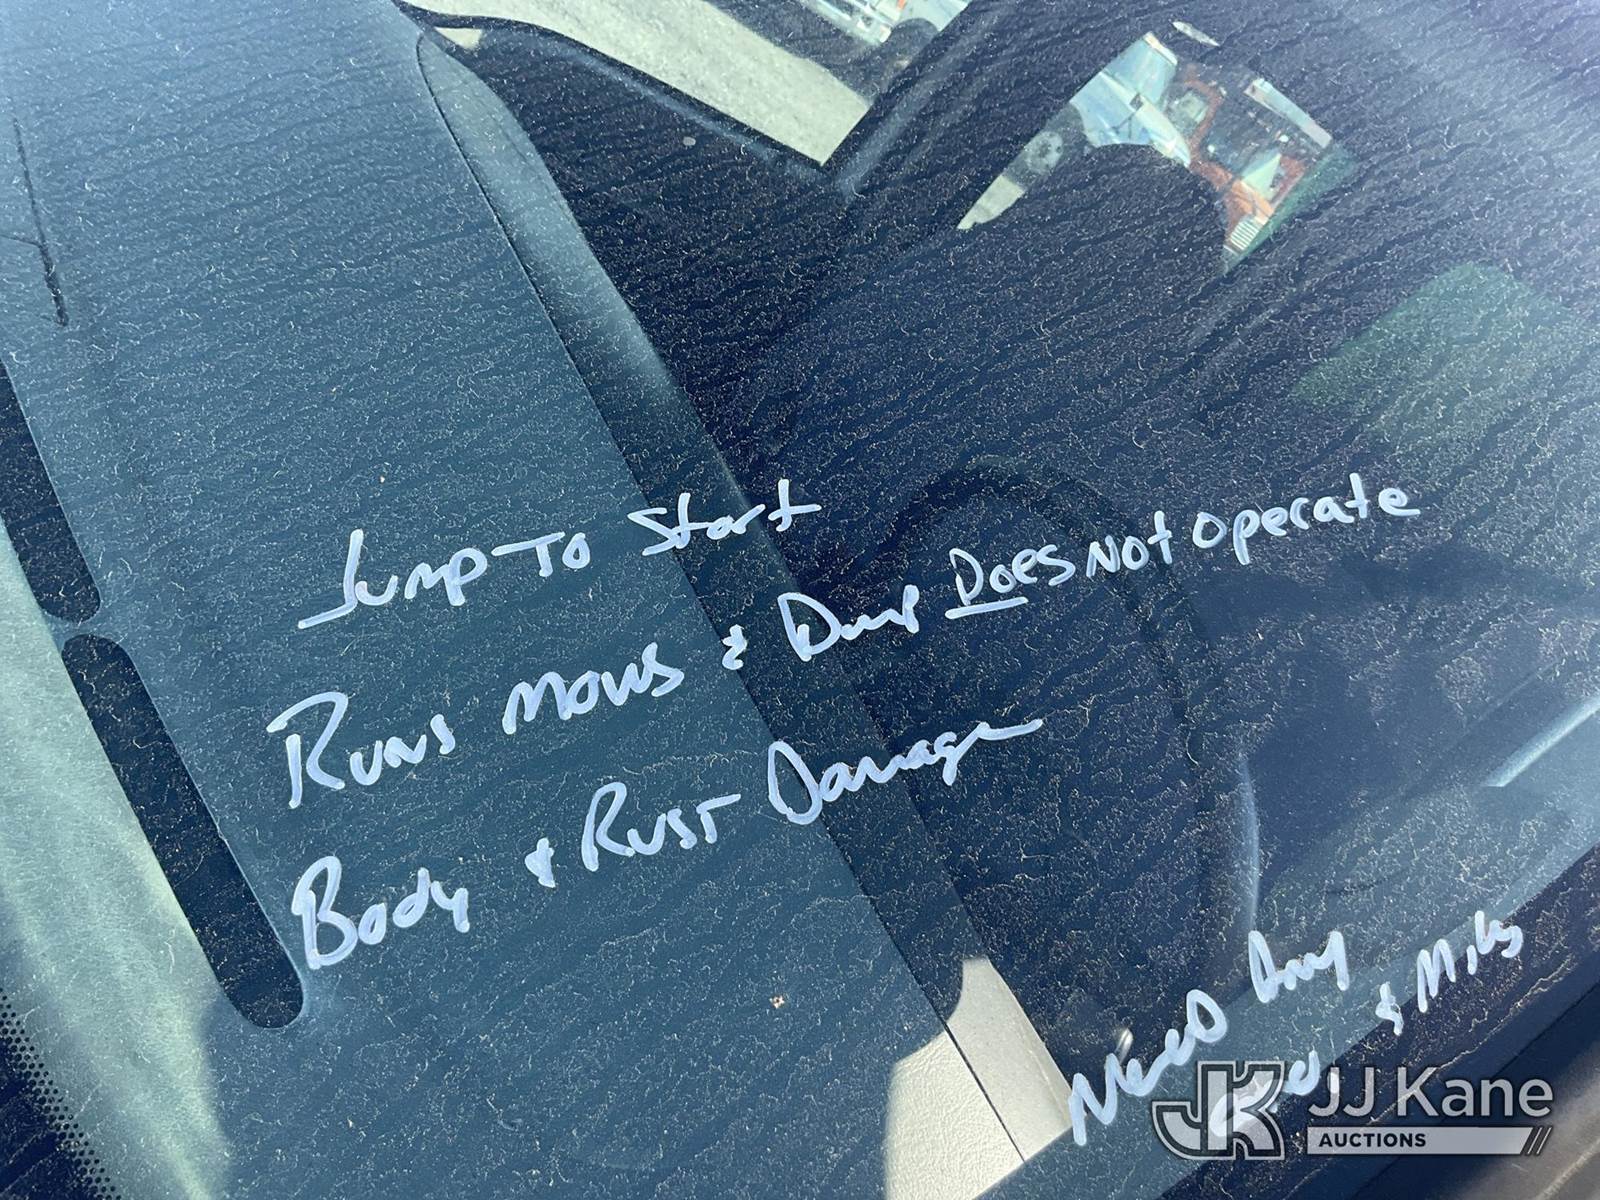 Jump To Start
Runs Moves & Dump Does Not Operate
Body & Rust Damage
Need
& Miles
JJ Kane
AUCTIONS